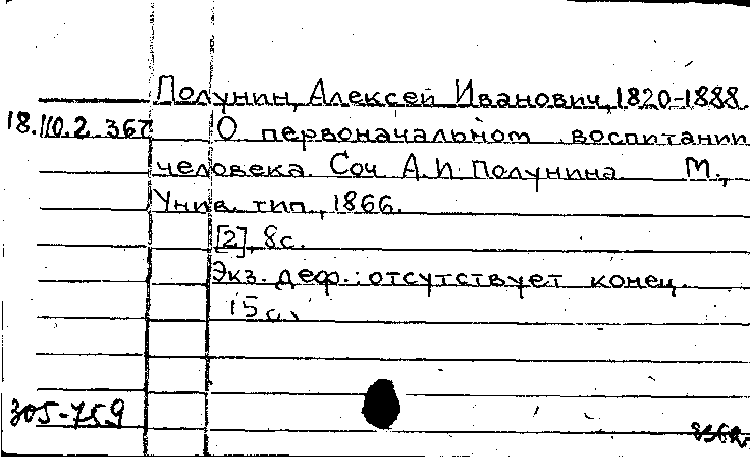 Полунин, Алексей Иванович, 1820-1888.
18.110.2.367 О первоначальном воспитании
человека. Соч. А.И. Полунина. М.,
Унив. тип., 1866.
[2], 8с.
Экз. деф.: отсутствует конец.
305-759